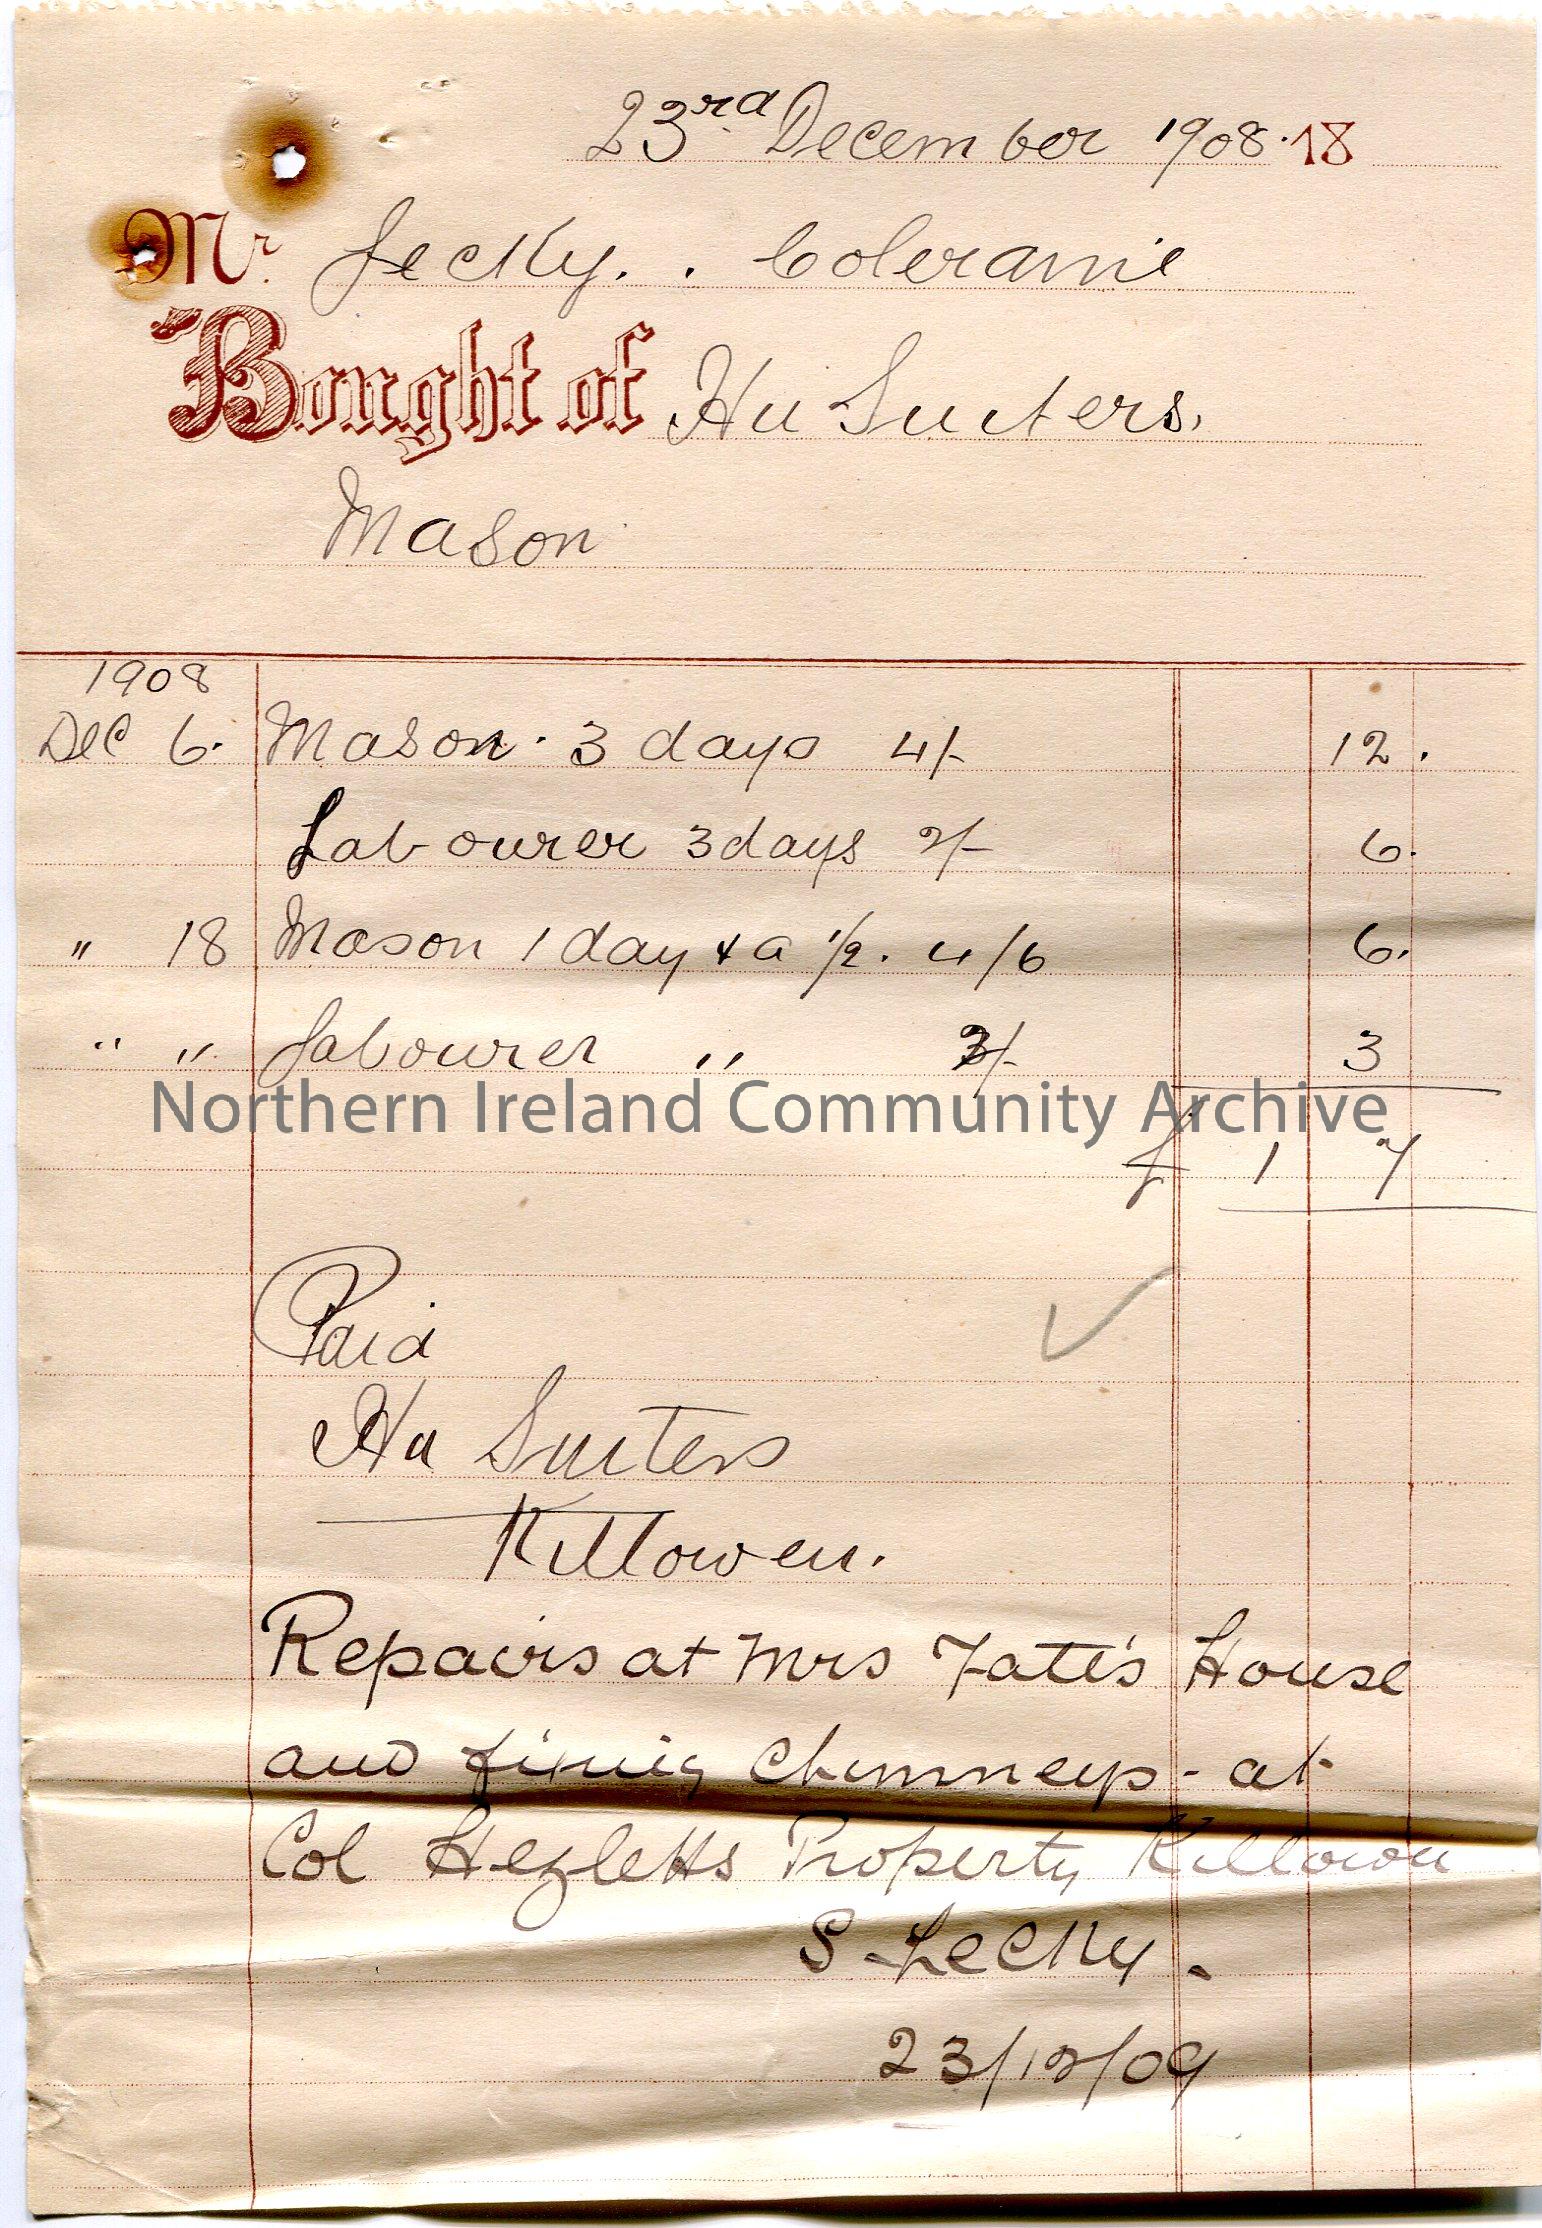 23rd December 1908. 18
Mr. Lecky. . Coleraine
Bought of Hu Suiters.
Mason
1908
Dec 6. Mason. 3 days 4/- 12.
Labourer 3 days 2/- 6.
" 18 Mason 1 day & a 1/2. 4/6 6.
" " Labourer " 3
Northern Ireland Community Archive
£ 1 7
Paid
Hu Suiters
Killowen.
Repairs at Mrs Tate's House
and fixing Chimneys - at
Col Hezletts Property Killowen
S. Lecky.
23/12/09